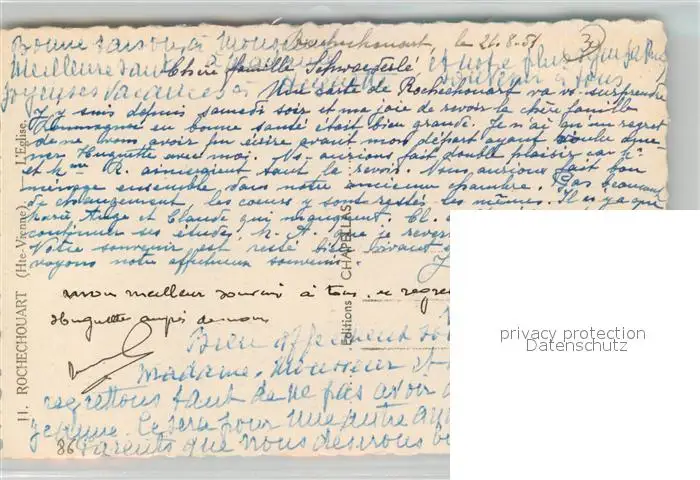 Bonne saison à Mons
Rochechouart le 21.8.51
Meilleure santé à et notre plus
Chère famille Schwaederlé
joyeuses vacances à Huguette souvenir à tous
Une carte de Rochechouart va vs. surprendre
J'y suis depuis samedi soir et ma joie de revoir la chère famille
en bonne santé était bien grande. Je n'ai qu'un regret
de ne vous avoir pu écrire avant mon départ ayant voulu
ner Huguette avec moi. Ns. aurions fait double plaisir car Mr
et Mme R. aimeraient tant la revoir. Nous aurions fait bon
ménage ensemble dans notre ancienne chambre. Pas beaucoup
de changement, les coeurs y sont restés les mêmes. Il n'y a que
Marie Ange et Claude qui manquent. Cl.
continuer ses études. M. A. que je
Votre souvenir est resté bien vivant
voyons notre affectueux souvenir. J
mon meilleur souvenir à tous. et
Huguette auprès de nous
Bien affectueux
Madame, Monsieur et
regrettons tant de ne pas avoir
Ce sera pour une autre
Parents que nous
86
H. ROCHECHOUART (Hte-Vienne) L'Eglise
Editions CHAPELLAS
privacy protection
Datenschutz